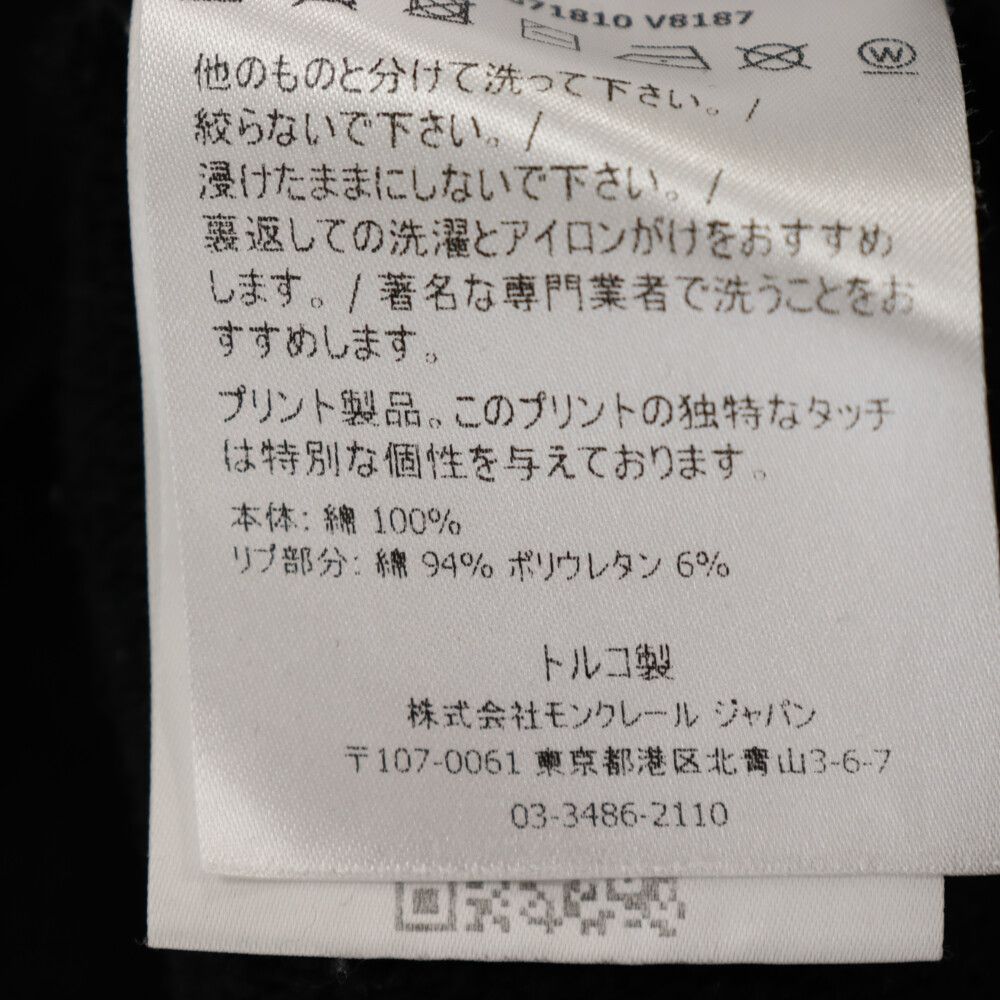 71810 V8187
W
他のものと分けて洗って下さい。/
絞らないで下さい。/
浸けたままにしないで下さい。/
裏返しての洗濯とアイロンがけをおすすめ
します。/ 著名な専門業者で洗うことをお
すすめします。
プリント製品。このプリントの独特なタッチ
は特別な個性を与えております。
本体: 綿 100%
リブ部分: 綿 94% ポリウレタン 6%
トルコ製
株式会社モンクレール ジャパン
〒107-0061 東京都港区北青山3-6-7
03-3486-2110